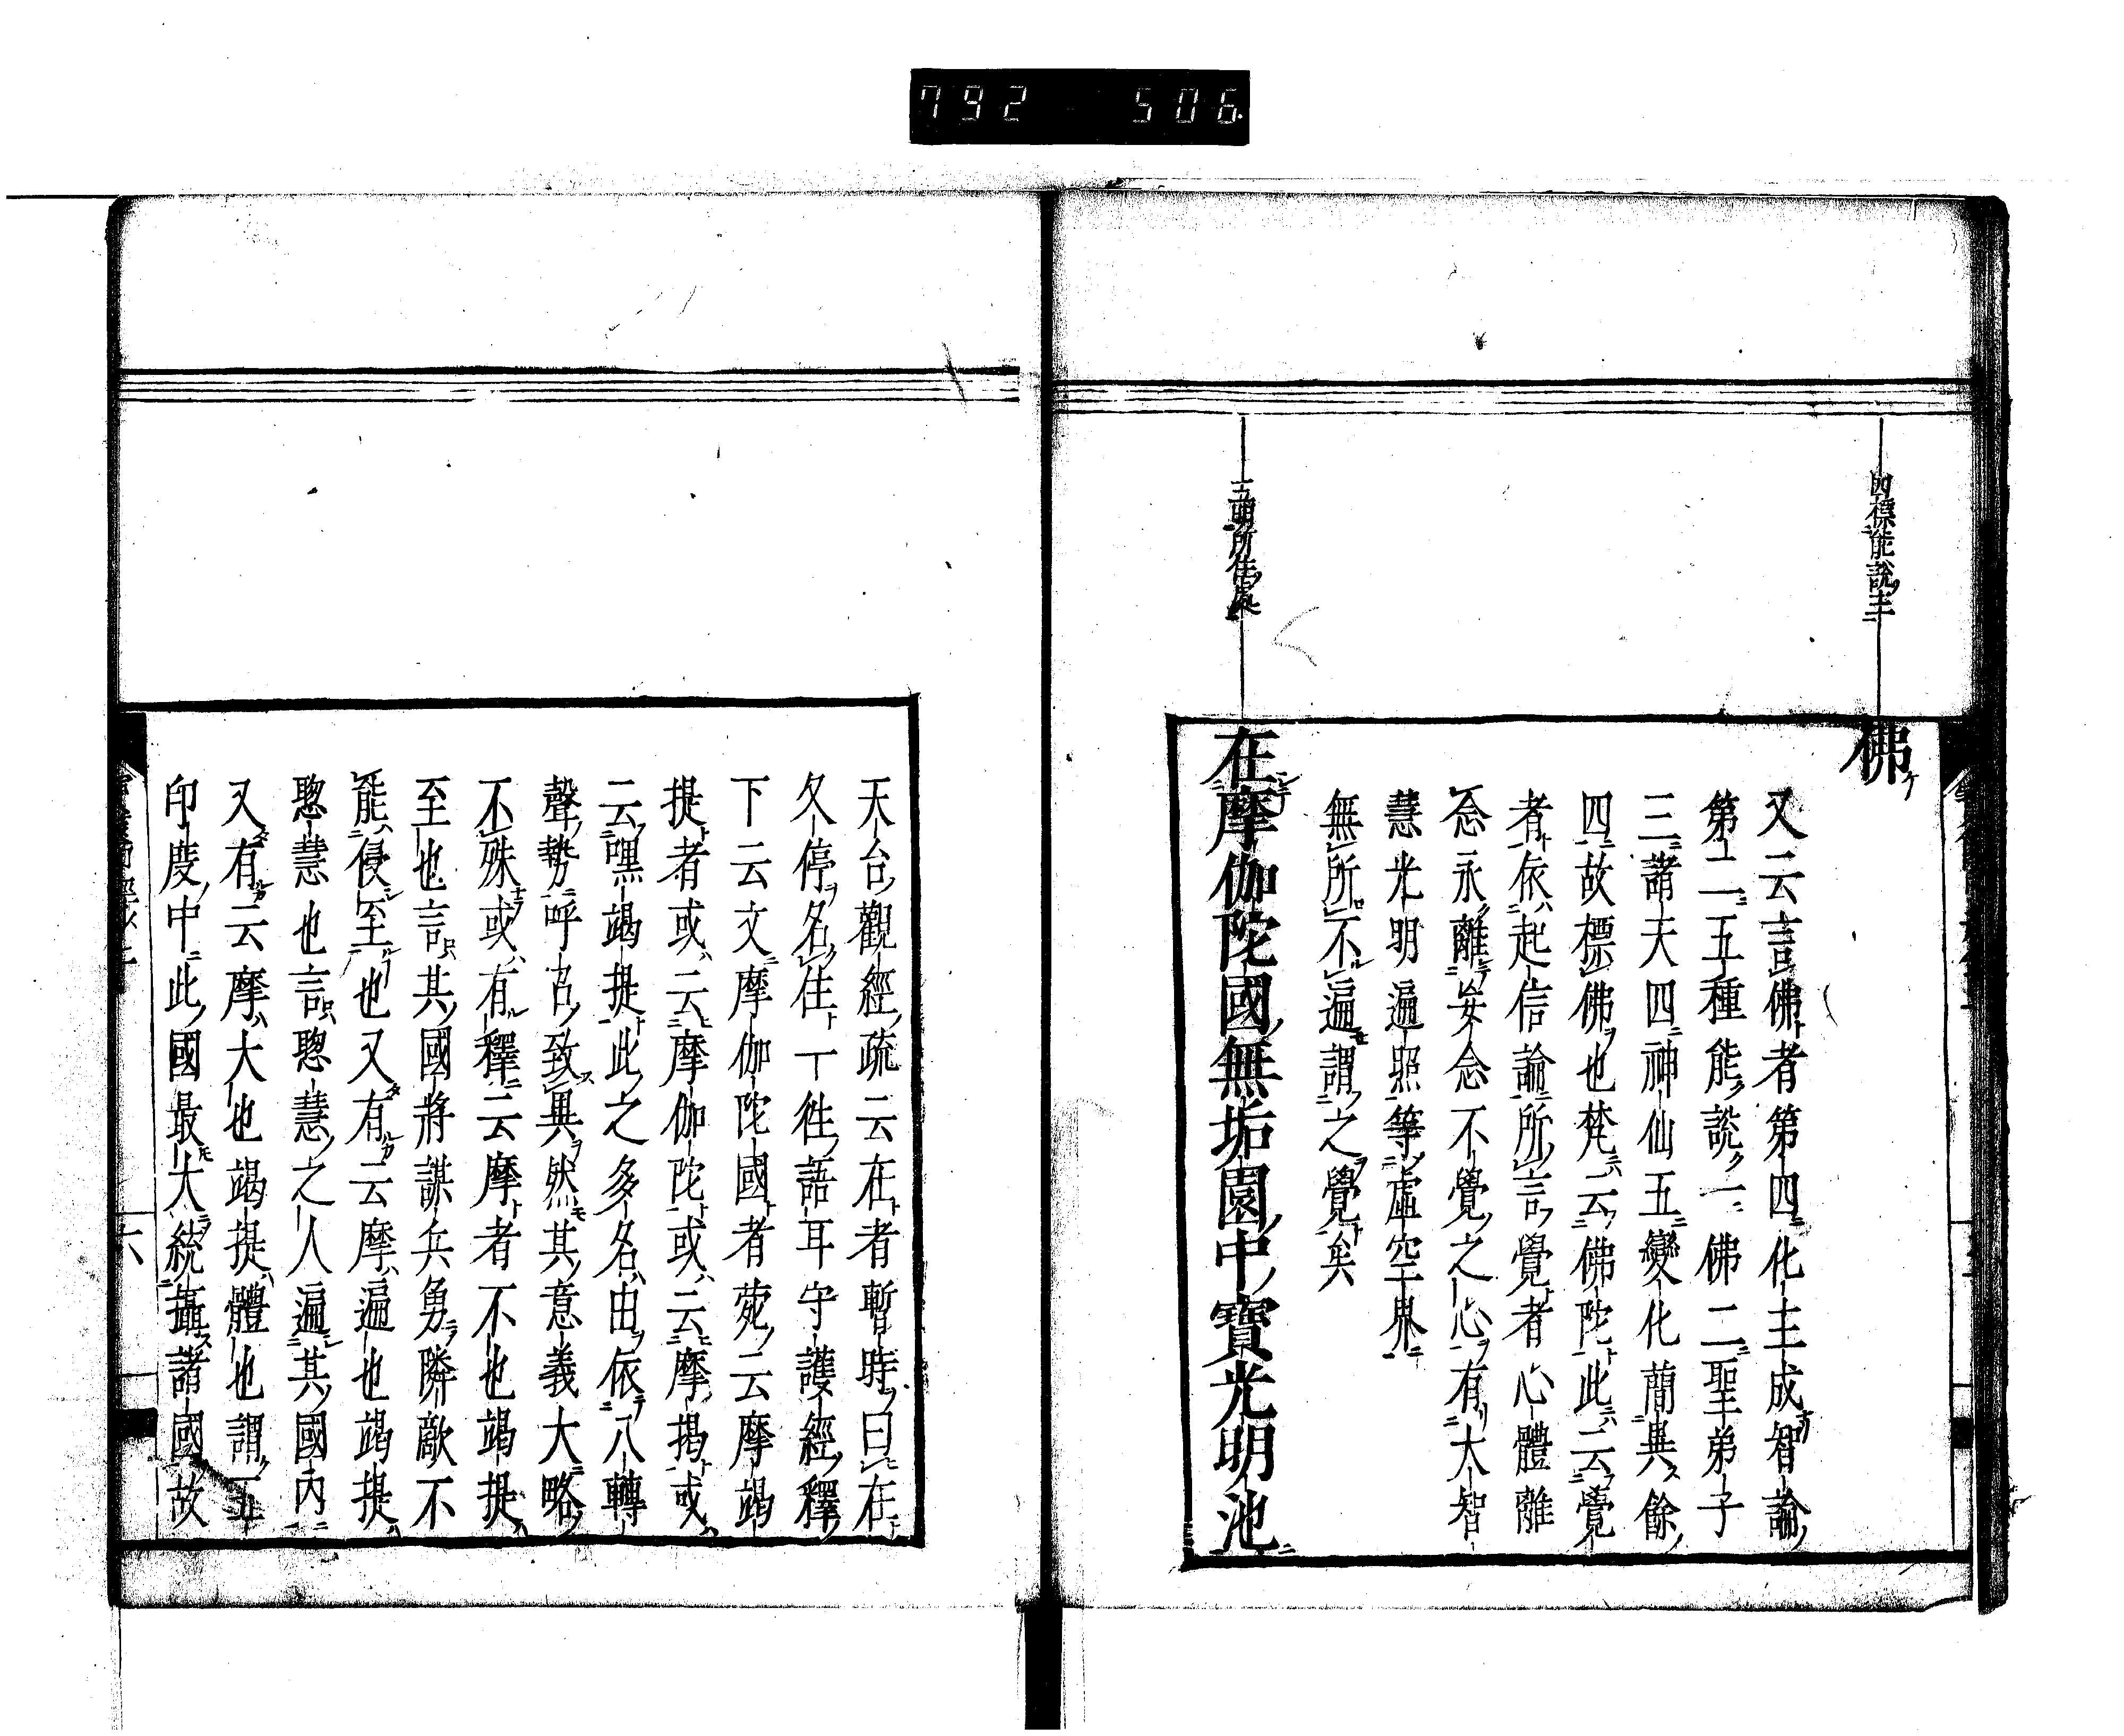 792 506
四標能說主
佛
又云言佛者第四化主成智論
第二五種能說一佛二聖弟子
三諸天四神仙五變化簡異餘
四故標佛也梵云佛陀此云覺
者依起信論所言覺者心體離
念永離妄念不覺之心有大智
慧光明遍照等虛空界
無所不遍謂之覺矣
五明所住處
在摩伽陀國無垢園中寶光明池
天台觀經疏云在者暫時曰在
久停名住一徃語耳守護經釋
下云文摩伽陀國者苑云摩竭
提者或云摩伽陀或云摩揭或
云嘿竭提此之多名由依八轉
聲勢呼召致異然其意義大略
不殊或有釋云摩者不也竭提
至也言其國將謀兵勇隣敵不
能侵至也又有云摩遍也竭提
聦慧也言聦慧之人遍其國內
又有云摩大也竭提體也謂五
印度中此國最大統攝諸國故
六